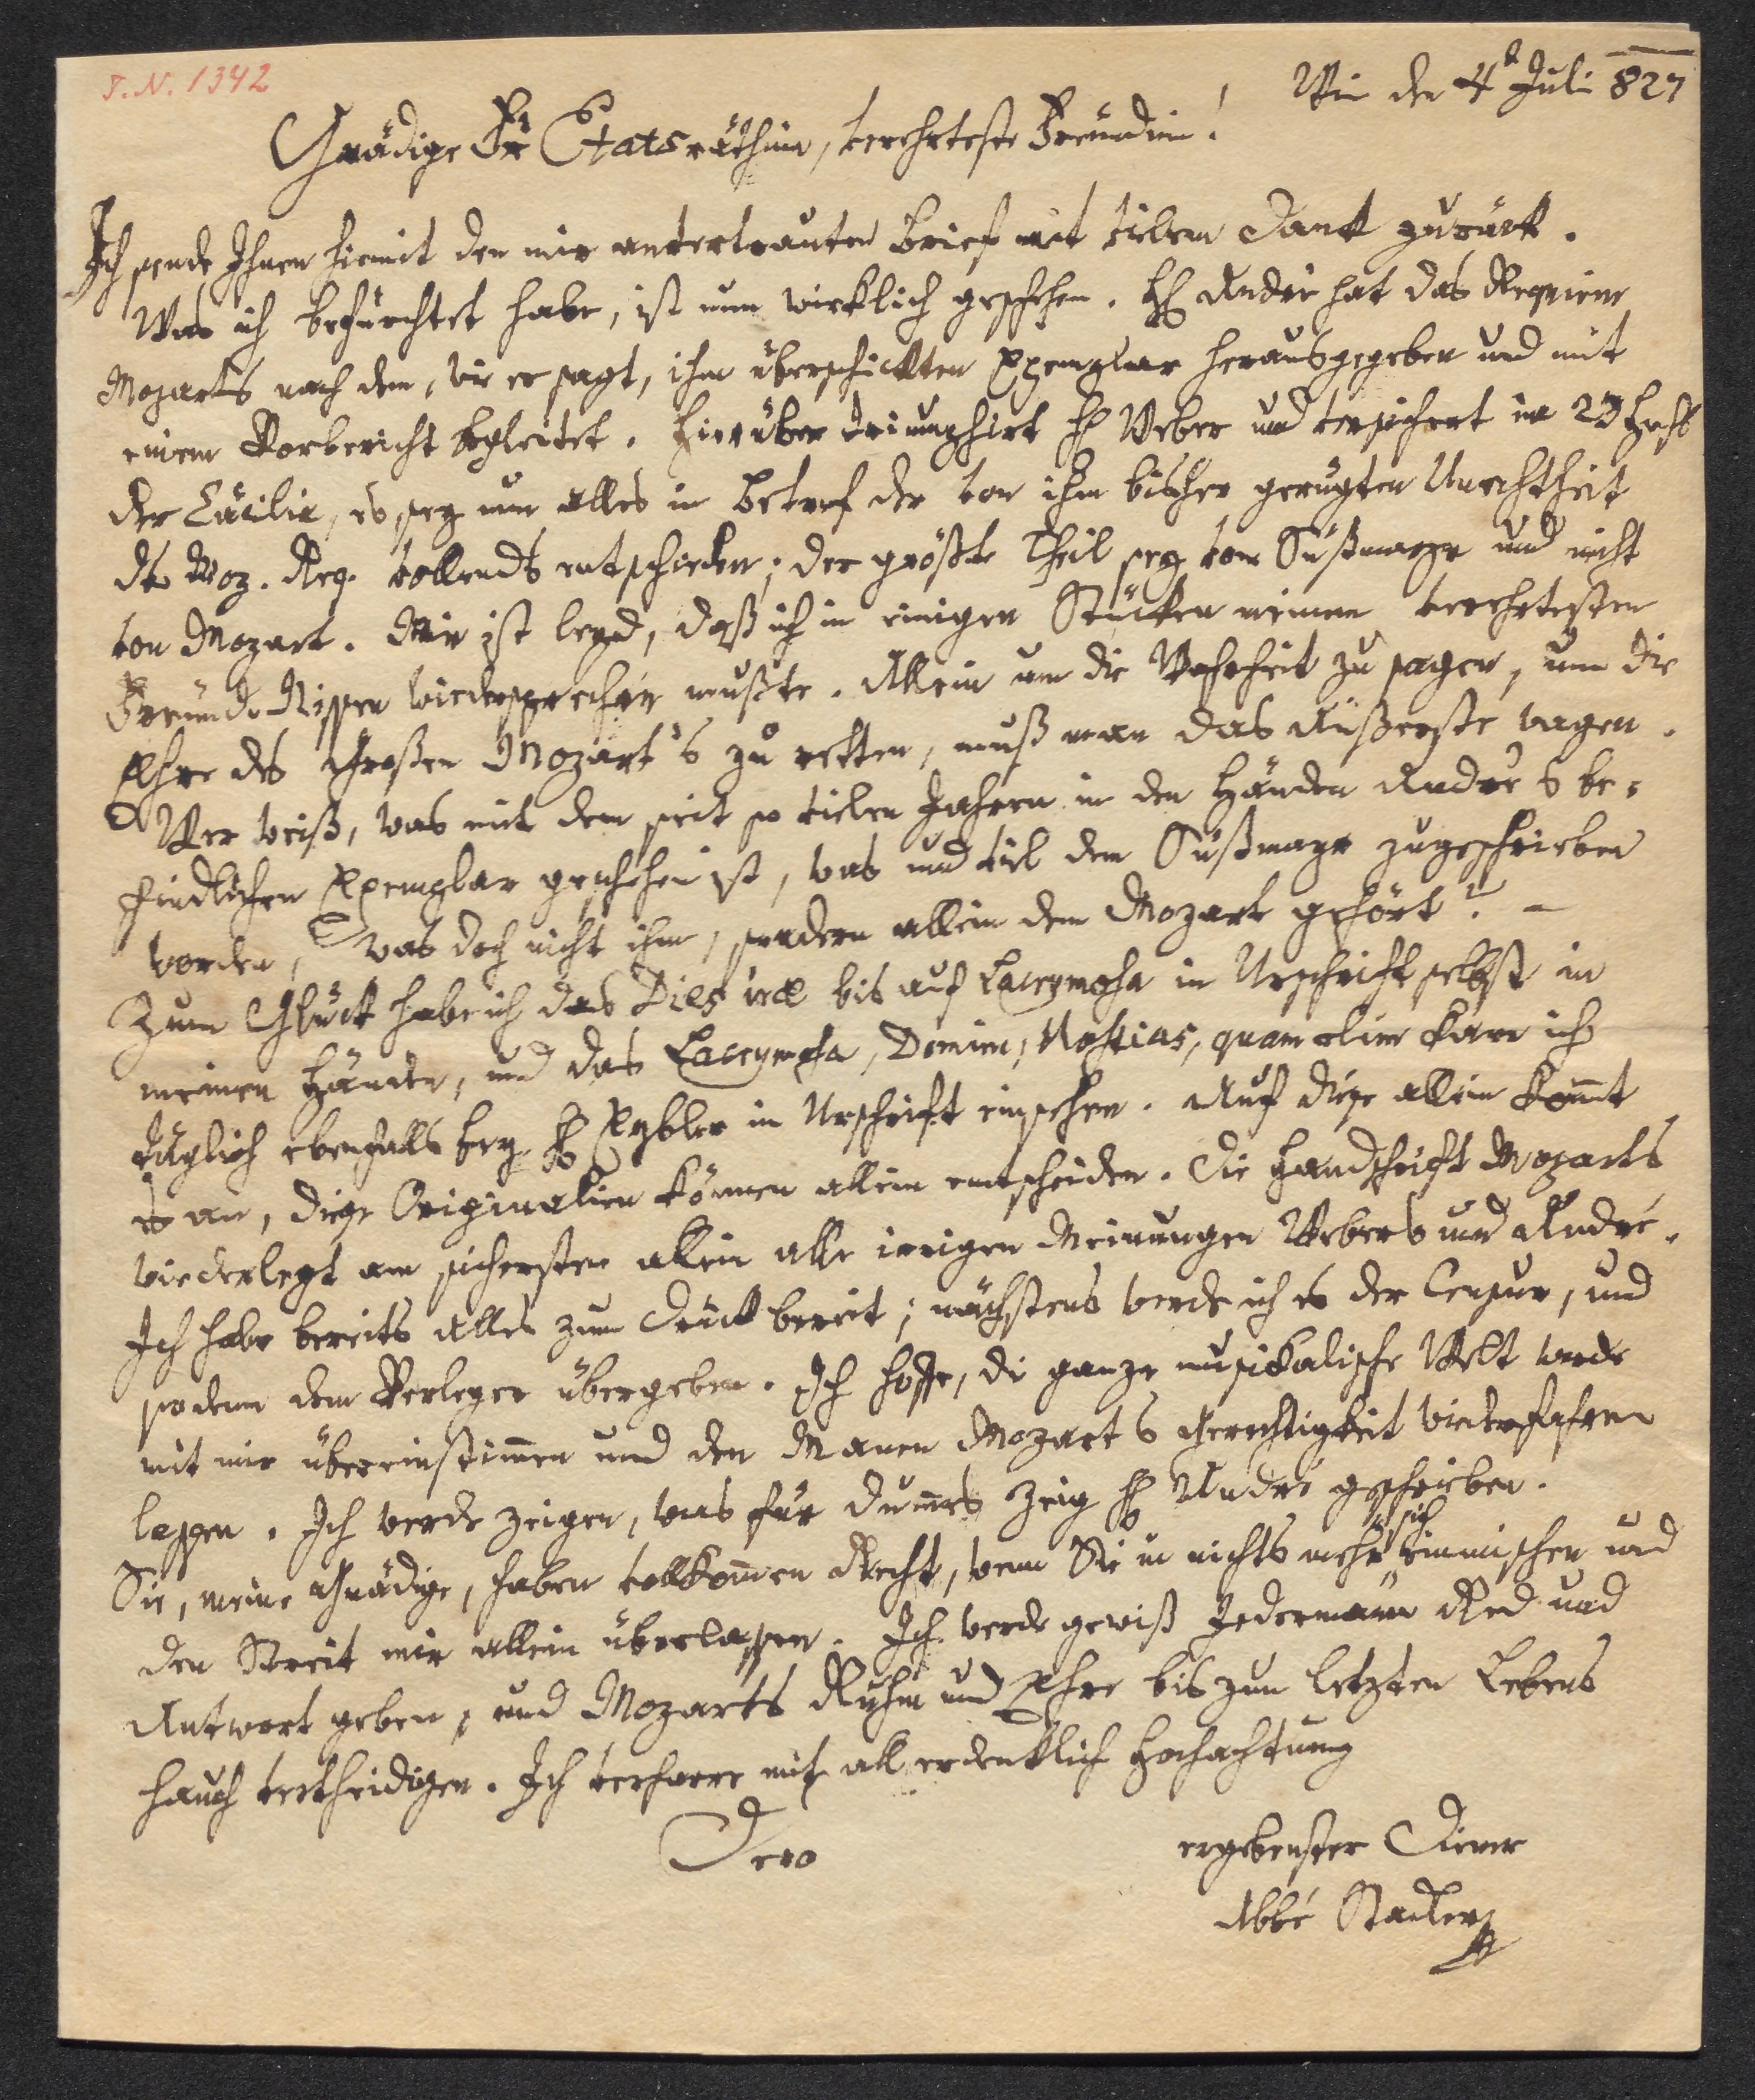 T. N. 1342
Wien den 4t Juli 827
Gnädige Fr Etatsräthin, verehrteste Freundin!
Ich sende Ihnen hiemit den mir anvertrauten Brief mit vielem Dank zurück.
Was ich befürchtet habe, ist nun wirklich geschehen. H André hat das Requiem
Mozarts nach dem, wie er sagt, ihm überschickten Exemplar herausgegeben und mit
einem Vorbericht begleitet. Hierüber triumphirt H Weber und versichert im 23 Heft
der Cäcilia, es sey nun alles in Betref der von ihm bisher gerügten Unechtheit
des Moz. Req. vollends entschieden; der größte Theil sey vom Süßmayr und nicht
von Mozart. Mir ist leyd, daß ich in einigen Stücken meinem verehrtesten
Freunde Nissen wiedersprechen mußte. Allein um die Wahrheit zu sagen, um die
Ehre des Großen Mozart's zu retten, muß man das Äußerste wagen.
Wer weiß, was mit dem seit so vielen Jahren in den Händen André's be-
findlichen Exemplar geschehen ist, was und viel dem Süßmayr zugeschrieben
worden, was doch nicht ihm, sondern allein dem Mozart gehört? –
Zum Glück habe ich das Dies iræ bis auf Lacrymosa in Urschrift selbst in
meinen Händen, und das Lacrymosa, Domine, Hostias, quam olim kann ich
täglich ebenfalls bey H Eybler in Urschrift einsehen. Auf diese allein kom̅t
es an, diese Originalien können allein entscheiden. Die Handschrift Mozarts
wiederlegt am sichersten allein alle irrigen Meinungen Webers und André.
Ich habe bereits alles zum Druck bereit; nächstens werde ich es der Censur, und
sodenn dem Verleger übergeben. Ich hoffe, die ganze musikalische Welt werde
mit mir übereinstim̅en und den Manen Mozarts Gerechtigkeit wiederfahren
lassen. Ich werde zeigen, was für dum̅es Zeig H André geschrieben.
Sie, meine Gnädige, haben vollkom̅en Recht, wenn Sie in nichts mehr sich einmischen und
den Streit mir allein überlassen. Ich werde gewiß Jedermann Red und
Antwort geben, und Mozarts Ruhm und Ehre bis zum letzten Lebens
hauch vertheidigen. Ich verharre mit all erdenklich Hochachtung
Dero
ergebenster Diener
Abbé Stadler